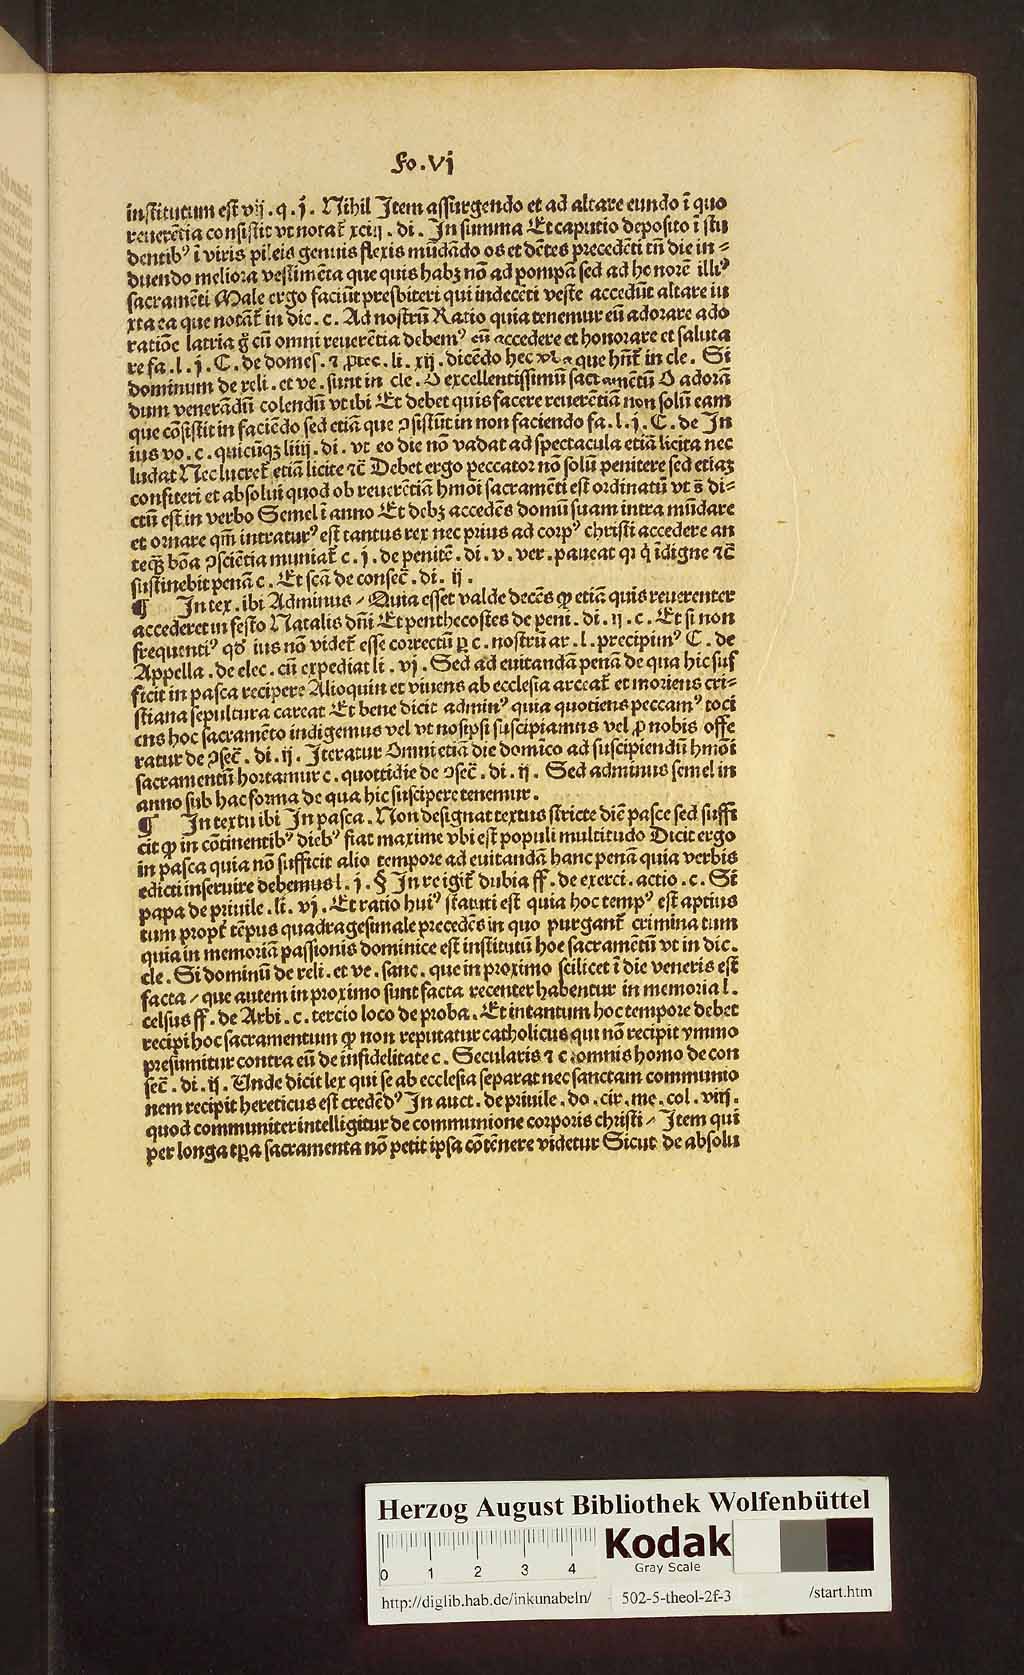 Fo.Vj
institutum est vij . q . j̄ . Nihil Item assurgendo et ad altare eundo ī quo
reuerētia consistit vt notat᷑ xciij . di . In summa Et caputio deposito ī stu
dentibꝰ ī viris pileis genuis flexis mūdādo os et dētes precedēti tn̄ die in⸗
duendo meliora vestimēta que quis habꝫ nō ad pompā sed ad honorē illiꝰ
sacramēti Male ergo faciūt presbiteri qui indecēti veste accedūt altare iu
xta ea que notāt᷑ in dic . c . Ad nostrū Ratio quia tenemur eū adorare ado
ratiōe latria g̊ cū omni reuerētia debemꝰ eū accedere et honorare et saluta
re fa . l . j . C . de domes . ⁊ ꝓtec . li . xij . dicēdo hec que hn̄t᷑ in cle . Si
dominum de reli . et ve . sunt in cle . O excellentissimū sacramētū O adorā
dum venerādū colendū vt ibi Et debet quis facere reuerētiā non solū eam
que cōsistit in faciēdo sed etiā que ꝯsistūt in non faciendo fa . l . j . C . de In
ius vo . c . quicūqꝫ liiij . di . vt eo die nō vadat ad spectacula etiā licita nec
ludat Nec lucret᷑ etiā licite ⁊c̄ Debet ergo peccator nō solū penitere sed etiaꝫ
confiteri et absolui quod ob reuerētiā hmōi sacramēti est ordinatū vt s̄ di⸗
ctū est in verbo Semel ī anno Et debꝫ accedēs domū suam intra mūdare
et ornare qm̄ intraturꝰ est tantus rex nec prius ad corpꝰ christi accedere an
teqꝫ̄ bōa ꝯsciētia muniat᷑ c . j . de penitē . di . v . ver . paueat qr q̇ īdigne ⁊c̄
sustinebit penā c . Et scā de consec̄ . di . ij .
¶ In tex . ibi Adminus / Quia esset valde decēs ꝙ etiā quis reuerenter
accederet in festo Natalis dn̄i Et penthecostes de peni . di . ij . c . Et si non
frequentiꝰ qd̓ ius nō videt᷑ esse correctū ꝑ c . nostrū ar . l . precipimꝰ C . de
Appella . de elec . cū expediat li . vj . Sed ad euitandā penā de qua hic suf
ficit in pasca recipere Alioquin et viuens ab ecclesia arceat᷑ et moriens cri⸗
stiana sepultura careat Et bene dicit adminꝰ quia quotiens peccamꝰ toci
ens hoc sacramēto indigemus vel vt nosipsi suscipiamus vel ꝓ nobis offe
ratur de ꝯsec̄ . di . ij . Iteratur Omni etiā die domīco ad suscipiendū hmōi
sacramentū hortamur c . quottidie de ꝯsec̄ . di . ij . Sed adminus semel in
anno sub hac forma de qua hic suscipere tenemur .
¶ In textu ibi In pasca . Non designat textus stricte diē pasce sed suffi
cit ꝙ in cōtinentibꝰ diebꝰ fiat maxime vbi est populi multitudo Dicit ergo
in pasca quia nō sufficit alio tempore ad euitandā hanc penā quia verbis
edicti inseruire debemus l . j . § In re igit᷑ dubia ff . de exerci . actio . c . Si
papa de priuile . li . vj . Et ratio huiꝰ statuti est quia hoc tempꝰ est aptius
tum propt᷑ tēpus quadragesimale precedēs in quo purgant᷑ crimina tum
quia in memoriā passionis dominice est institutū hoc sacramētū vt in dic .
cle . Si dominū de reli . et ve . sanc . que in proximo scilicet ī die veneris est
facta / que autem in proximo sunt facta recenter habentur in memoria l .
celsus ff . de Arbi . c . tercio loco de proba . Et intantum hoc tempore debet
recipi hoc sacramentum ꝙ non reputatur catholicus qui nō recipit ymmo
presumitur contra eū de infidelitate c . Secularis ⁊ c omnis homo de con
sec̄ . di . ij . Unde dicit lex qui se ab ecclesia separat nec sanctam communio
nem recipit hereticus est credēdꝰ In auct . de priuile . do . cir . me . col . viij .
quod communiter intelligitur de communione corporis christi / Item qui
per longa tꝑa sacramenta nō petit ipsa cōtēnere videtur Sicut de absolu
Herzog August Bibliothek Wolfenbüttel
0 1 2 3 4
Kodak
Gray Scale
http://diglib.hab.de/inkunabeln/ 502-5-theol-2f-3 /start.htm